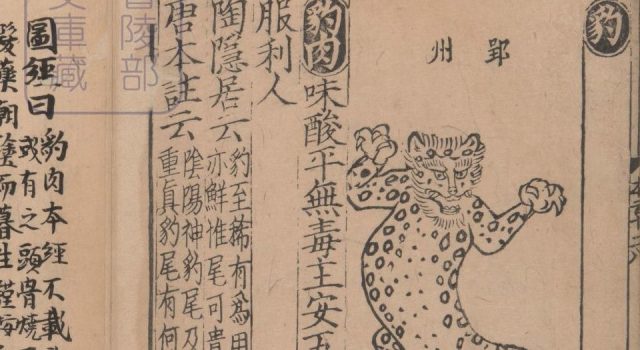 豹
郢州
豹肉味酸平無毒主安五
服利人
陶隱居云豹至稀有爲用
亦鮮惟尾可貴
唐本註云陰陽神豹尾及
重真豹尾有何
陵部
庫藏
圖經曰豹肉本經不載
或有之頭骨燒
髮藥朝塗而暮生謹按